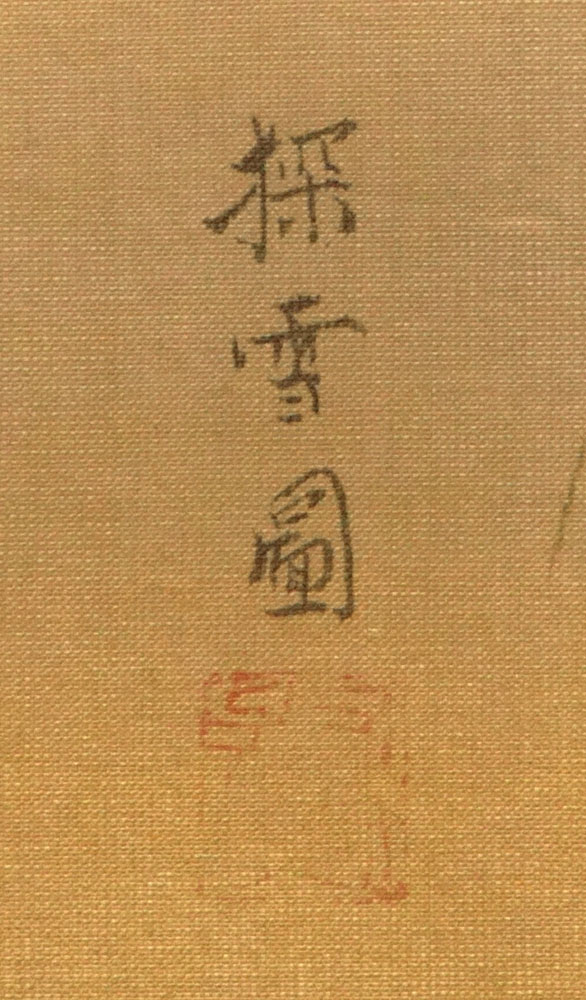 探雪圖